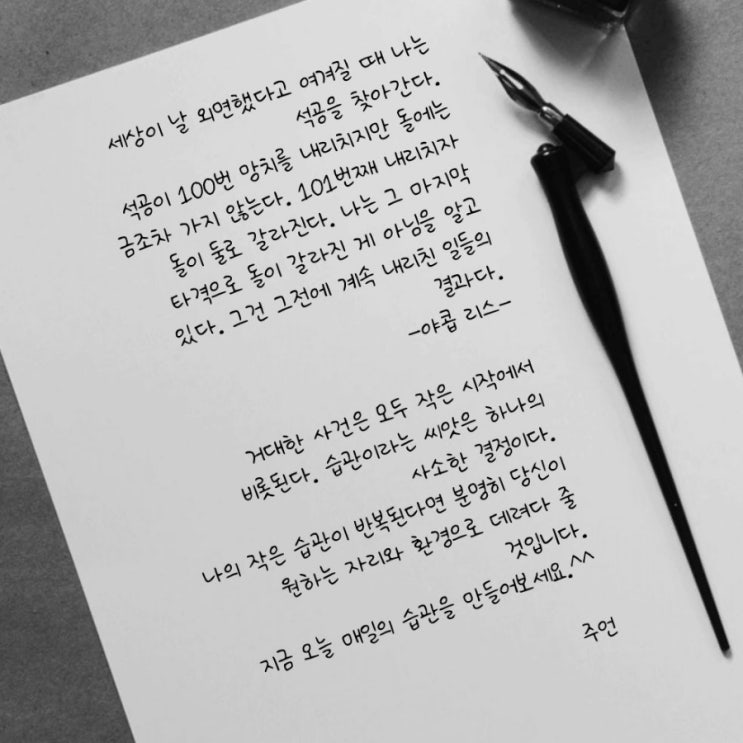 세상이 날 외면했다고 여겨질 때 나는
석공을 찾아간다.
석공이 100번 망치를 내리치지만 돌에는
금조차 가지 않는다. 101번째 내리치자
돌이 둘로 갈라진다. 나는 그 마지막
타격으로 돌이 갈라진 게 아님을 알고
있다. 그건 그전에 계속 내리친 일들의
결과다.
-야콥 리스-
거대한 사건은 모두 작은 시작에서
비롯된다. 습관이라는 씨앗은 하나의
사소한 결정이다.
나의 작은 습관이 반복된다면 분명히 당신이
원하는 자리와 환경으로 데려다 줄
것입니다.
지금 오늘 매일의 습관을 만들어보세요.^^
주언